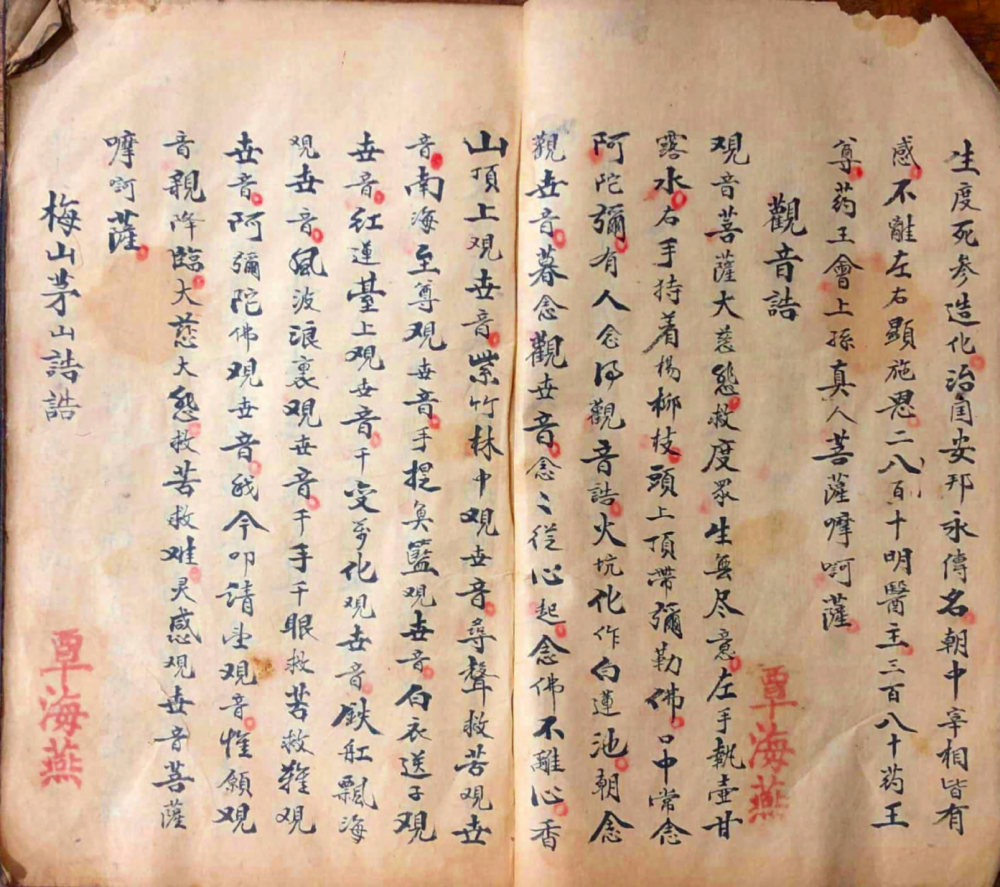 生度死参造化治国安邦永傳名朝中宰相皆有
感不離左右顯施恩二八百十明醫主三百八十药王
尊药王會上孫真人菩薩摩呵薩
觀音誥
观音菩薩大慈悲救度眾生無尽意左手執壶甘
露水右手持着楊柳枝頭上頂帶彌勒佛口中常念
阿陀彌有人念得觀音誥火坑化作白蓮池朝念
觀世音暮念觀世音念〻從心起念佛不離心香
山頂上观世音紫竹林中观世音尋聲救苦观世
音南海至尊观世音手提魚籃观世音白衣送子观
世音紅蓮臺上观世音千变万化观世音鉄船飄海
观世音風波浪裏观世音千手千眼救苦救難观
世音阿彌陀佛观世音我今叩請聖观音惟願观
音親降臨大慈大悲救苦救难灵感观世音菩薩
嗼呵薩
梅山茅山誥誥
覃海燕
覃海燕